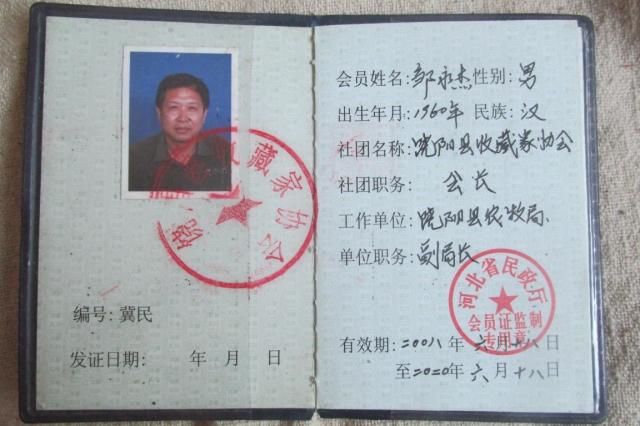 藏家协会
编号:冀民
发证日期: 年 月 日
会员姓名:邹永杰性别:男
出生年月:1960年 民族:汉
社团名称:饶阳县收藏家协会
社团职务: 会长
工作单位:饶阳县农牧局
单位职务:副局长
河北省民政厅
会员证监制
专用章
有效期:二00八年六月十八日
至二0二0年六月十八日